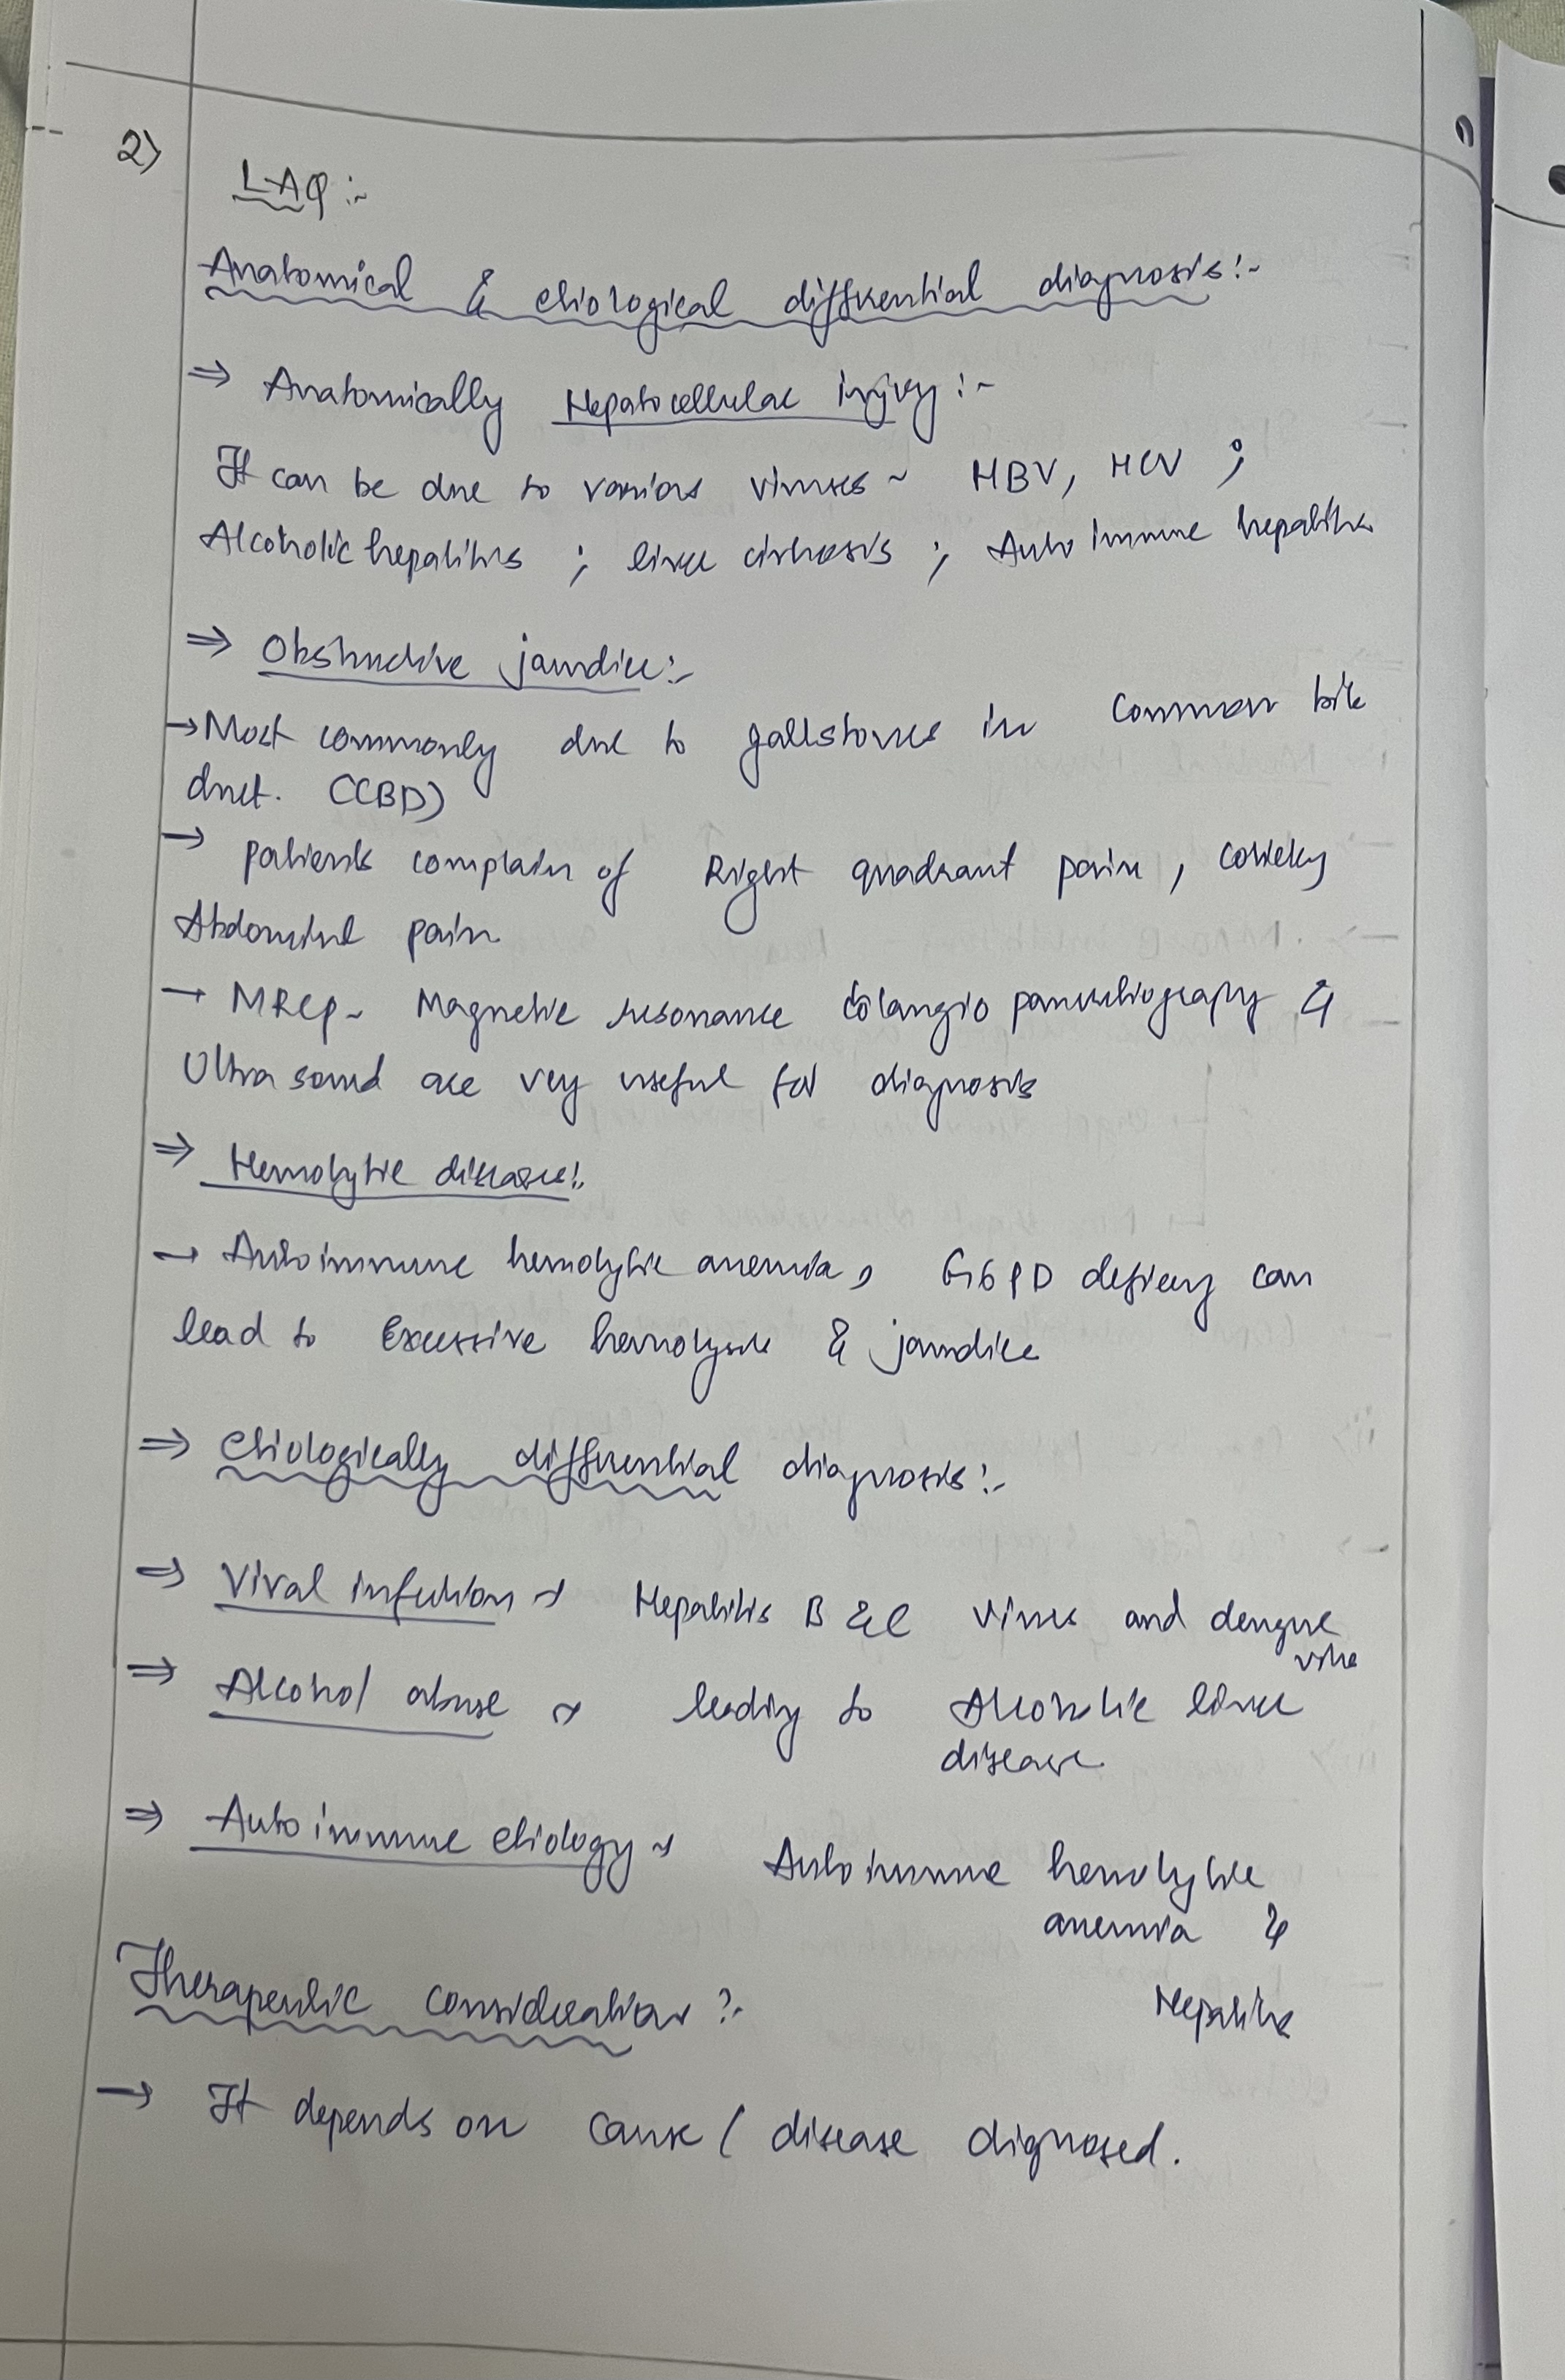 2)
LAQ :-
Anatomical & etiological differential diagnosis:-
⇒ Anatomically Hepatocellular injury :-
It can be due to various viruses - HBV, HCV ;
Alcoholic hepatitis ; liver cirhosis ; Auto immune hepatitis
⇒ Obstructive jaundice:-
→ Most commonly due to gallstones in common bile
duct. (CBD)
→ patients complain of Right quadrant pain, colicky
Abdominal pain
→ MRCP - Magnetic resonance colangio pancreatiography &
Ultra sound are very useful for diagnosis
⇒ Hemolytic disease:-
→ Autoimmune hemolytic anemia, G6PD deficency can
lead to Excessive hemolysis & jaundice
⇒ etiologically differential diagnosis:-
⇒ Viral infection → Hepatitis B & C virus and dengue
virus
⇒ Alcohol abuse → leading to Alcoholic liver
disease
⇒ Auto immune etiology → Auto immune hemolytic
anemia &
Hepatitis
Therapeutic consideration :-
→ It depends on cause / disease dignosed.